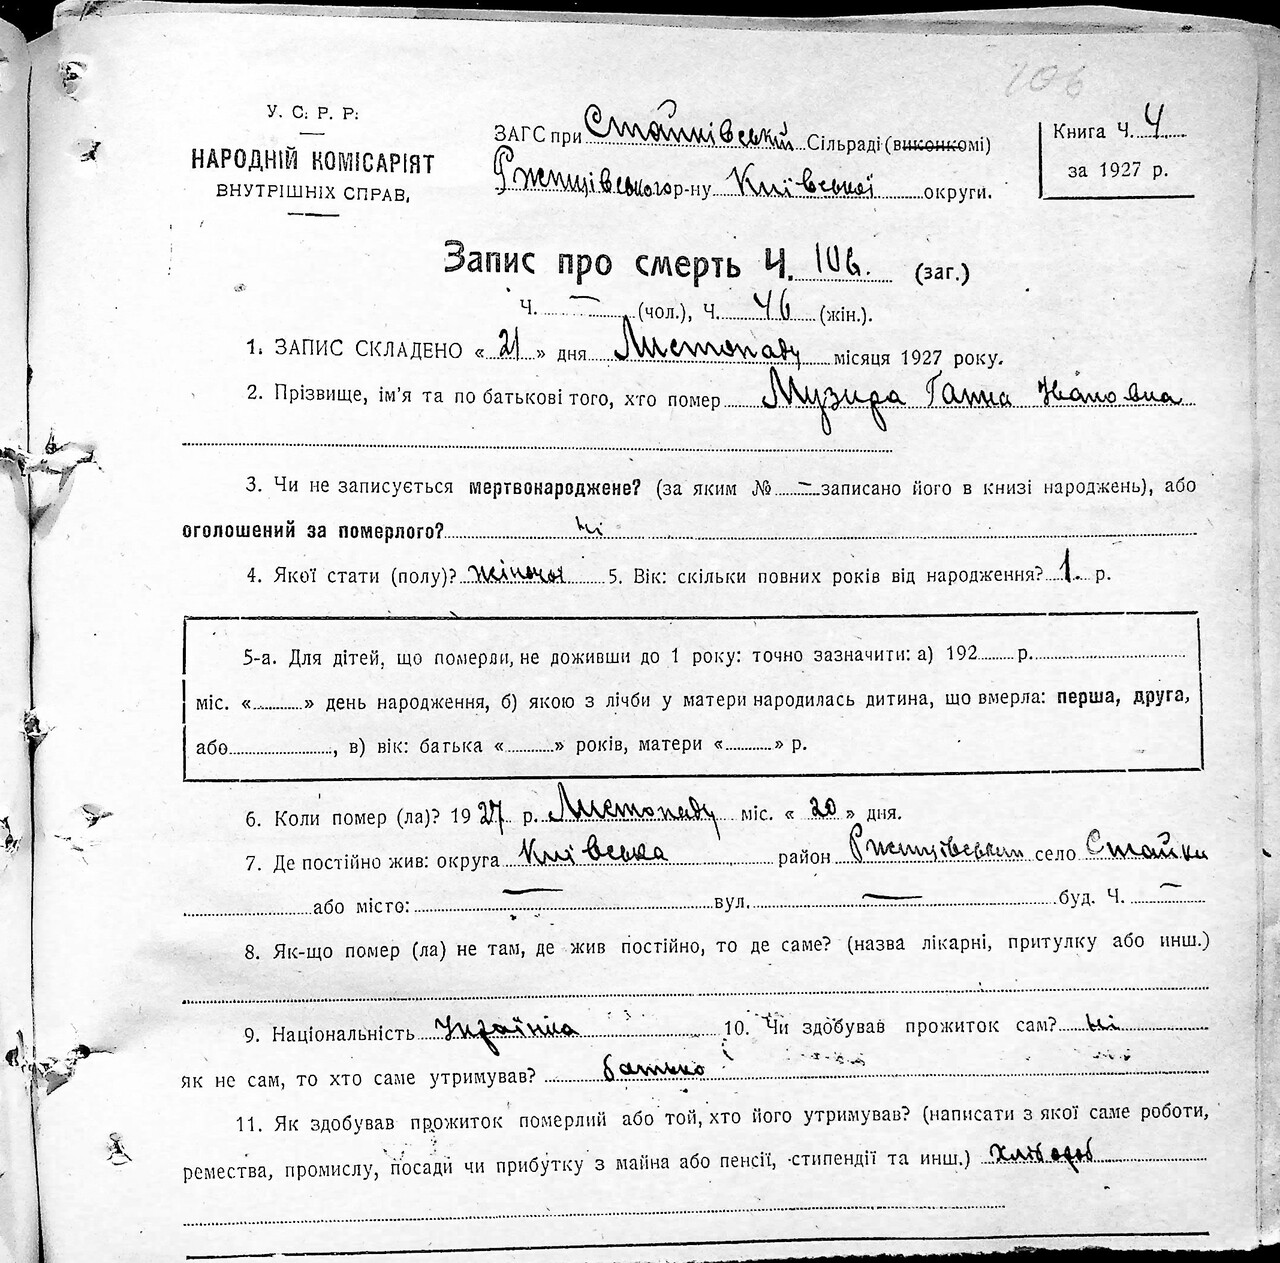 106
У. С. Р. Р.
НАРОДНІЙ КОМІСАРІЯТ
ВНУТРІШНІХ СПРАВ,
ЗАГС при Стайківській Сільраді (виконкомі)
Ржищівського р-ну Київської округи.
Книга Ч. 4
за 1927 р.
Запис про смерть Ч. 106. (заг.)
Ч. — (чол.), Ч. 46 (жін.).
1. ЗАПИС СКЛАДЕНО « 21 » дня Листопаду місяця 1927 року.
2. Прізвище, ім'я та по батькові того, хто помер Музира Ганна Івановна
3. Чи не записується мертвонароджене? (за яким № — записано його в книзі народжень), або
оголошений за померлого? ні
4. Якої стати (полу)? жіночої 5. Вік: скільки повних років від народження? 1. р.
5-а. Для дітей, що померли, не доживши до 1 року: точно зазначити: а) 192 р.
міс. « » день народження, б) якою з лічби у матери народилась дитина, що вмерла: перша, друга,
або , в) вік: батька « » років, матери « » р.
6. Коли помер (ла)? 1927 р. Листопаду міс. « 20 » дня.
7. Де постійно жив: округа Київська район Ржищівський село Стайки
або місто: — вул. — буд. Ч. —
8. Як-що помер (ла) не там, де жив постійно, то де саме? (назва лікарні, притулку або инш.)
9. Національність Українка 10. Чи здобував прожиток сам? ні
як не сам, то хто саме утримував? батько
11. Як здобував прожиток померлий або той, хто його утримував? (написати з якої саме роботи,
ремества, промислу, посади чи прибутку з майна або пенсії, стипендії та инш.) хлібороб